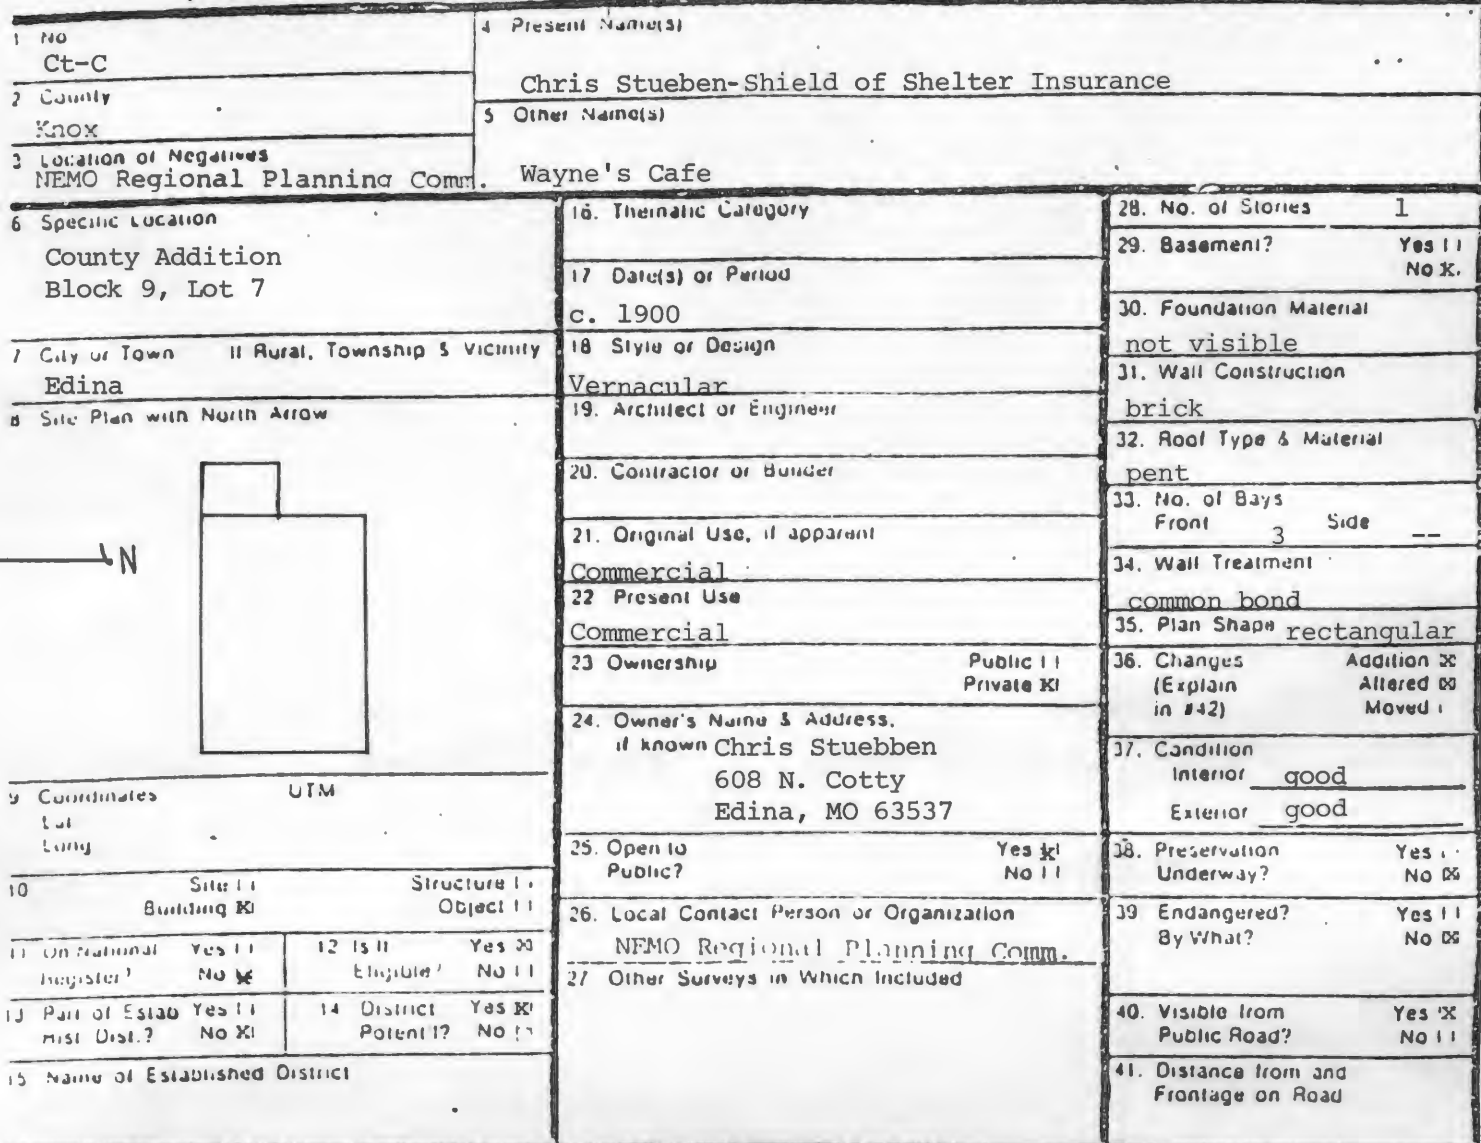 1 No
Ct-C
2 County
Knox
3 Location of Negatives
NEMO Regional Planning Comm.
4 Present Name(s)
Chris Stueben-Shield of Shelter Insurance
5 Other Name(s)
Wayne's Cafe
6 Specific Location
County Addition
Block 9, Lot 7
7 City or Town If Rural, Township & Vicinity
Edina
8 Site Plan with North Arrow
N
9 Coordinates UTM
Lat
Long
10 Site Structure
Building X Object
11 On National Yes
Register? No X
12 Is It Yes X
Eligible? No
13 Part of Estab Yes
Hist. Dist.? No X
14 District Yes X
Potent'l? No
15 Name of Established District
16. Thematic Category
17 Date(s) or Period
c. 1900
18 Style or Design
Vernacular
19. Architect or Engineer
20. Contractor or Builder
21. Original Use, if apparent
Commercial
22 Present Use
Commercial
23 Ownership Public
Private X
24. Owner's Name & Address,
if known Chris Stuebben
608 N. Cotty
Edina, MO 63537
25. Open to Yes X
Public? No
26. Local Contact Person or Organization
NEMO Regional Planning Comm.
27 Other Surveys in Which Included
28. No. of Stories 1
29. Basement? Yes
No X
30. Foundation Material
not visible
31. Wall Construction
brick
32. Roof Type & Material
pent
33. No. of Bays
Front 3 Side --
34. Wall Treatment
common bond
35. Plan Shape rectangular
36. Changes Addition X
(Explain Altered X
in #42) Moved
37. Condition
Interior good
Exterior good
38. Preservation Yes
Underway? No X
39 Endangered? Yes
By What? No X
40. Visible from Yes X
Public Road? No
41. Distance from and
Frontage on Road